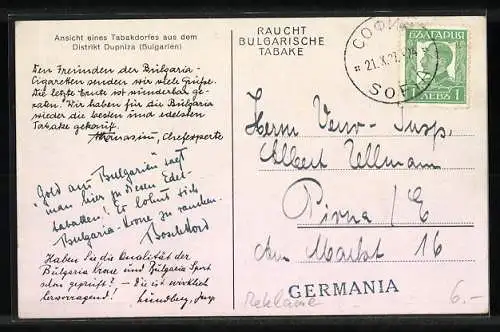 Ansicht eines Tabakdorfes aus dem
Distrikt Dupniza (Bulgarien)
Den Freunden der Bulgaria-
Cigaretten senden wir viele Grüße.
Die letzte Ernte ist wunderbar ge-
raten! Wir haben für die Bulgaria
wieder die besten und edelsten
Tabake gekauft.
Chefexperte
"Gold aus Bulgarien" sagt
man hier zu diesen Edel-
tabaken! Es lohnt sich
Bulgaria-Krone zu rauchen.
Haben Sie die Qualität der
Bulgaria Krone und Bulgaria Sport
schon geprüft? – Die ist wirklich
hervorragend!
RAUCHT
BULGARISCHE
TABAKE
СОФИЯ
21.X.
SOFIA
БЪЛГАРИЯ
1 ЛЕВЪ 1
Herrn Verw. Insp.
Albert Ullmann
Pirna/E
Am Markt 16
GERMANIA
Reklame
6.-